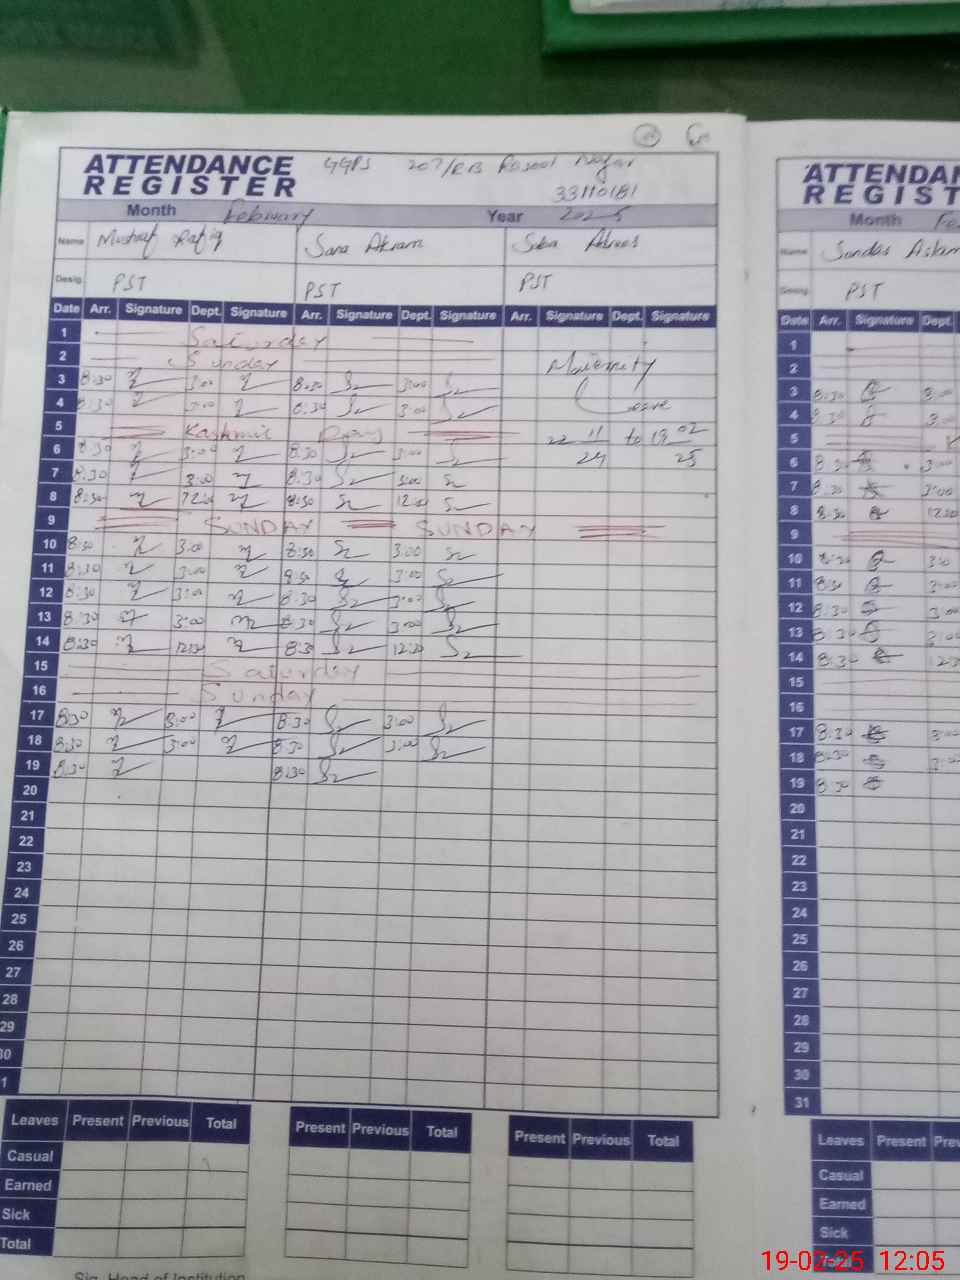 ATTENDANCE REGISTER
GGPS 207/RB Rasool Nagar
33110181
Month February Year 2025
Name Musharaf Rafiq Sana Akram Saba
Desig. PST PST PST
Date Arr. Signature Dept. Signature Arr. Signature Dept. Signature Arr. Signature Dept. Signature
1 Saturday
2 Sunday
3 8:30 3:00 8:30 3:00
4 8:30 3:00 8:30 3:00
Maternity
Leave
5 Kashmir Day
22 11 24 to 19 02 25
6 8:30 3:00 8:30 3:00
7 8:30 3:00 8:30 3:00
8 8:30 12:00 8:30 12:00
9 SUNDAY SUNDAY
10 8:30 3:00 8:30 3:00
11 8:30 3:00 8:30 3:00
12 8:30 3:00 8:30 3:00
13 8:30 3:00 8:30 3:00
14 8:30 12:30 8:30 12:30
15 Saturday
16 Sunday
17 8:30 3:00 8:30 3:00
18 8:30 3:00 8:30 3:00
19 8:30 8:30
20
21
22
23
24
25
26
27
28
29
30
1
Leaves Present Previous Total Present Previous Total Present Previous Total
Casual
Earned
Sick
Total
Sig. Head of Institution
ATTENDAN
REGIST
Month
Name Sundas Aslam
Desig. PST
Date Arr. Signature Dept.
1
2
3 8:30 3:00
4 8:30 3:00
5
6 8:30 3:00
7 8:30 3:00
8 8:30 12:00
9
10 8:30 3:00
11 8:30 3:00
12 8:30 3:00
13 8:30 3:00
14 8:30 12:30
15
16
17 8:30 3:00
18 8:30 3:00
19 8:30
20
21
22
23
24
25
26
27
28
29
30
31
Leaves Present Prev
Casual
Earned
Sick
Total
19-02-25 12:05